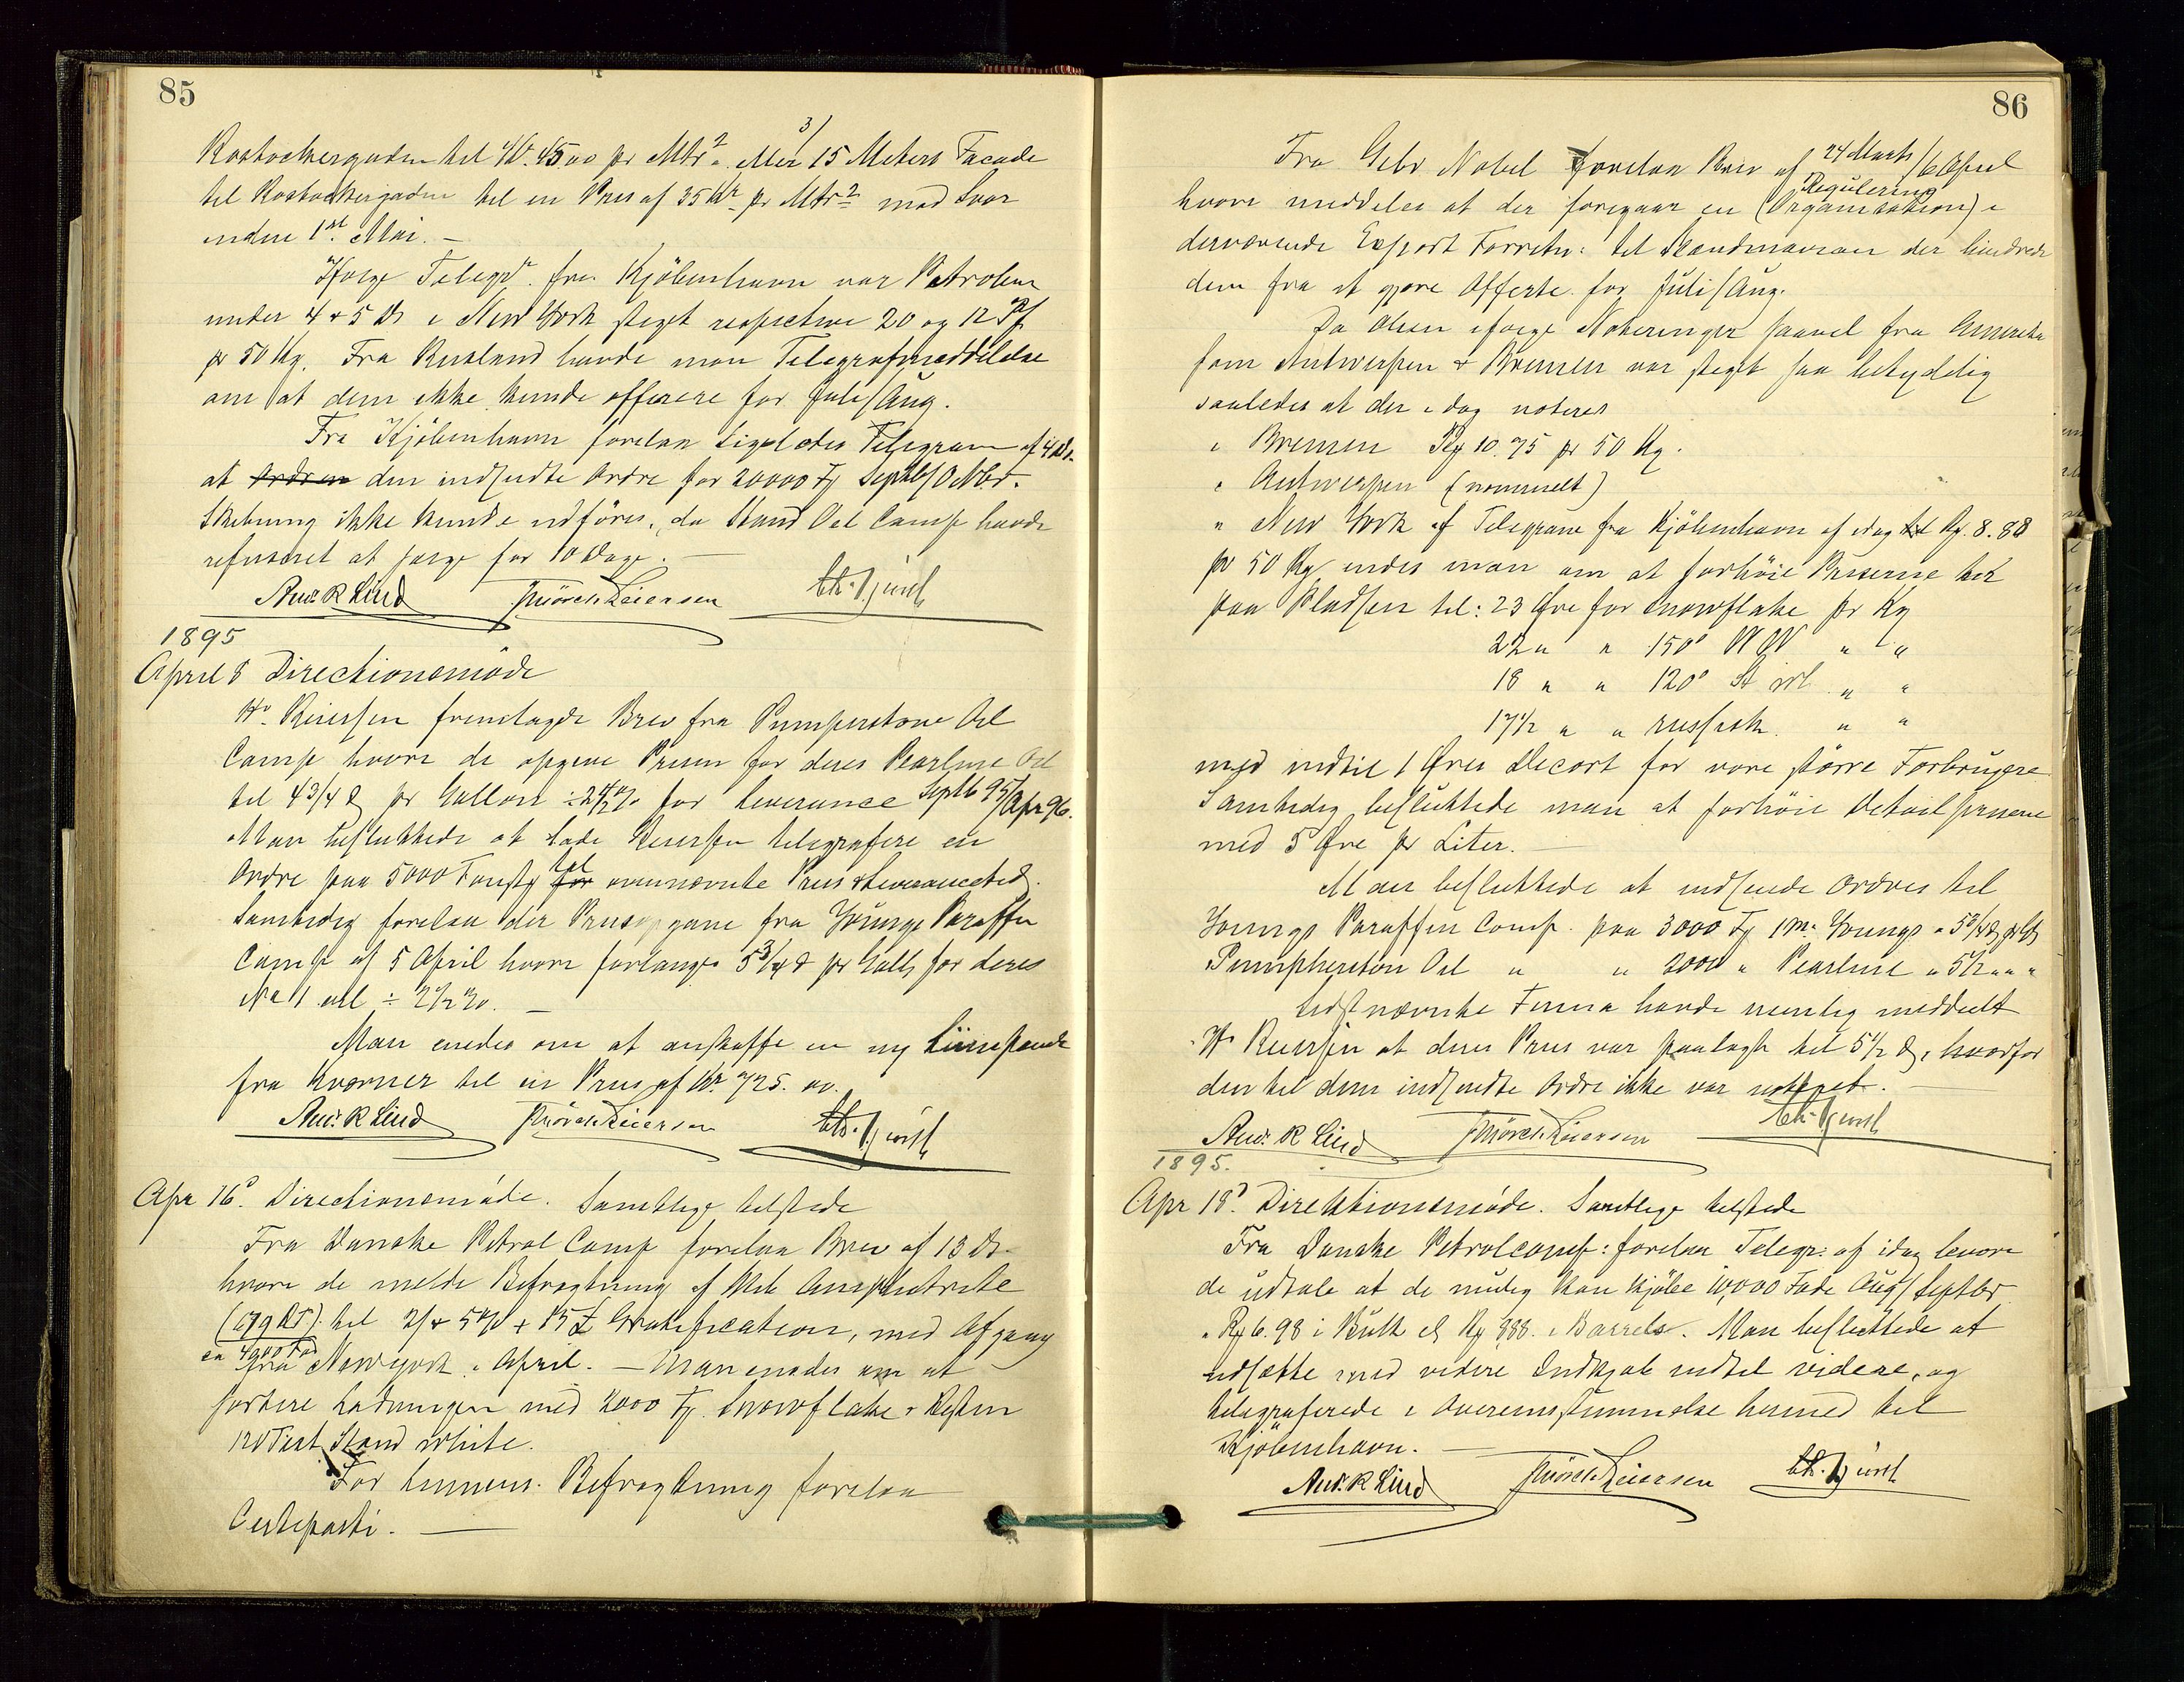 85
Rostockergaden til Kr. 45.00 pr Mtr² eller 3/ 15 Meters Facade
til Rostockergaden til en Pris af 35 Kr pr Mtr² med Svar
inden 1st Mai. —
Ifølge Telegr. fra Kjöbenhavn var Petroleum
under 4 & 5 ds i New York steget respective 20 og 12 Pf
pr 50 Kg. Fra Rusland havde man Telegrafmeddelelse
om at dem ikke kunde offerere for Juli/Aug.
Fra Kjöbenhavn forelaa ligeledes Telegram af 4 ds.
at Ordren den indsendte Ordre for 20000 Fj Septb/Octbr.
Skibning ikke kunde udföres, da Stand Oil Comp havde
refuseret at sælge for 10 Dage. —
And. R Lind Mörch Reiersen Chr. Bjursch
1895
April 8 Directionsmöde
Hr. Reiersen fremlagde Brev fra Pumpherston Oil
Comp hvori de opgive Prisen for deres Pearline Oil
til 4 3/4 d pr Gallon ÷ 2 1/2 % for Leverance Septb 95/Apr 96.
Man besluttede at lade Reiersen telegrafere en
Ordre paa 5000 Fustg for til ovennævnte Pris & Leverancetid.
Samtidig forelaa der Prisopgave fra Youngs Paraffin
Comp af 5 April hvori forlanges 5 3/4 d pr Gall for deres
No 1 oil ÷ 2 1/2 %. —
Man enedes om at anskaffe en ny Limpande
fra Kværner til en Pris af Kr. 725. 00.
And. R Lind Mörch Reiersen Chr. Bjursch
Apr 16d. Directionsmöde. Samtlige tilstede
Fra Danske Petrol Comp forelaa Brev af 13 ds
hvori de melde Befragtning af Skib Amphitrite
(579 RT) til 2/ & 5 % + 15 £ Gratification, med Afgang
ca 4900 Fad
fra New York i April. — Man enedes om at
sortere Ladningen med 2000 Fj. Snowflake & Resten
120 Test Stand white.
For hennes Befragtning forelaa
Certeparti. —
86
Fra Gebr Nobel forelaa Brev af 24 Marts/6 April
hvori meddeles at der foregaar en Regulering (Organisation) i
derværende Export Forretn: til Skandinavien der hindrede
dem fra at gjøre Offerte for Juli/Aug.
Da Olien ifølge Noteringer saavel fra Amerika
som Antwerpen & Bremen var steget saa betydelig
saaledes at der i dag noteres
i Bremen Rg 10.75 pr 50 Kg.
i Antwerpen (nominelt)
" New York if Telegram fra Kjöbenhavn af idag til Rg. 8.88
pr 50 Kg enedes man om at forhöie Priserne her
paa Pladsen til: 23 Øre for Snowflake pr Kg
22 " " 150° WW " "
18 " " 120° St wh. " "
17 1/2 " " russisk. " "
med indtil 1 Øres Decort for vore större Forbrugere.
Samtidig besluttede man at forhöie Detailpriserne
med 5 Øre pr Liter. —
Man besluttede at indsende Ordres til
Youngs Paraffin Comp. paa 3000 Fj prm. Youngs a 5 3/4 d pr G
Pumpherston Oil " " 2000 " Pearline " 5 1/2 " "
Sidstnævnte Firma havde nemlig meddeelt
Hr Reiersen at deres Pris var paalagt til 5 1/2 d, hvorfor
den til dem indsendte Ordre ikke var noteret. —
And. R Lind Mörch Reiersen Chr. Bjursch
1895.
Apr 18d Direktionsmöde. Samtlige tilstede
Fra Danske Petrolcomp: forelaa Telegr. af idag hvori
de udtale at de mulig kan kjöbe 10,000 Fade Aug/Septbr
a Rg 6.98 i Bulk el Rg 888. i Barrels. Man besluttede at
udsætte med videre Indkjøb indtil videre, og
telegraferede i Overensstemmelse hermed til
Kjöbenhavn. —
And. R Lind Mörch Reiersen Chr. Bjursch